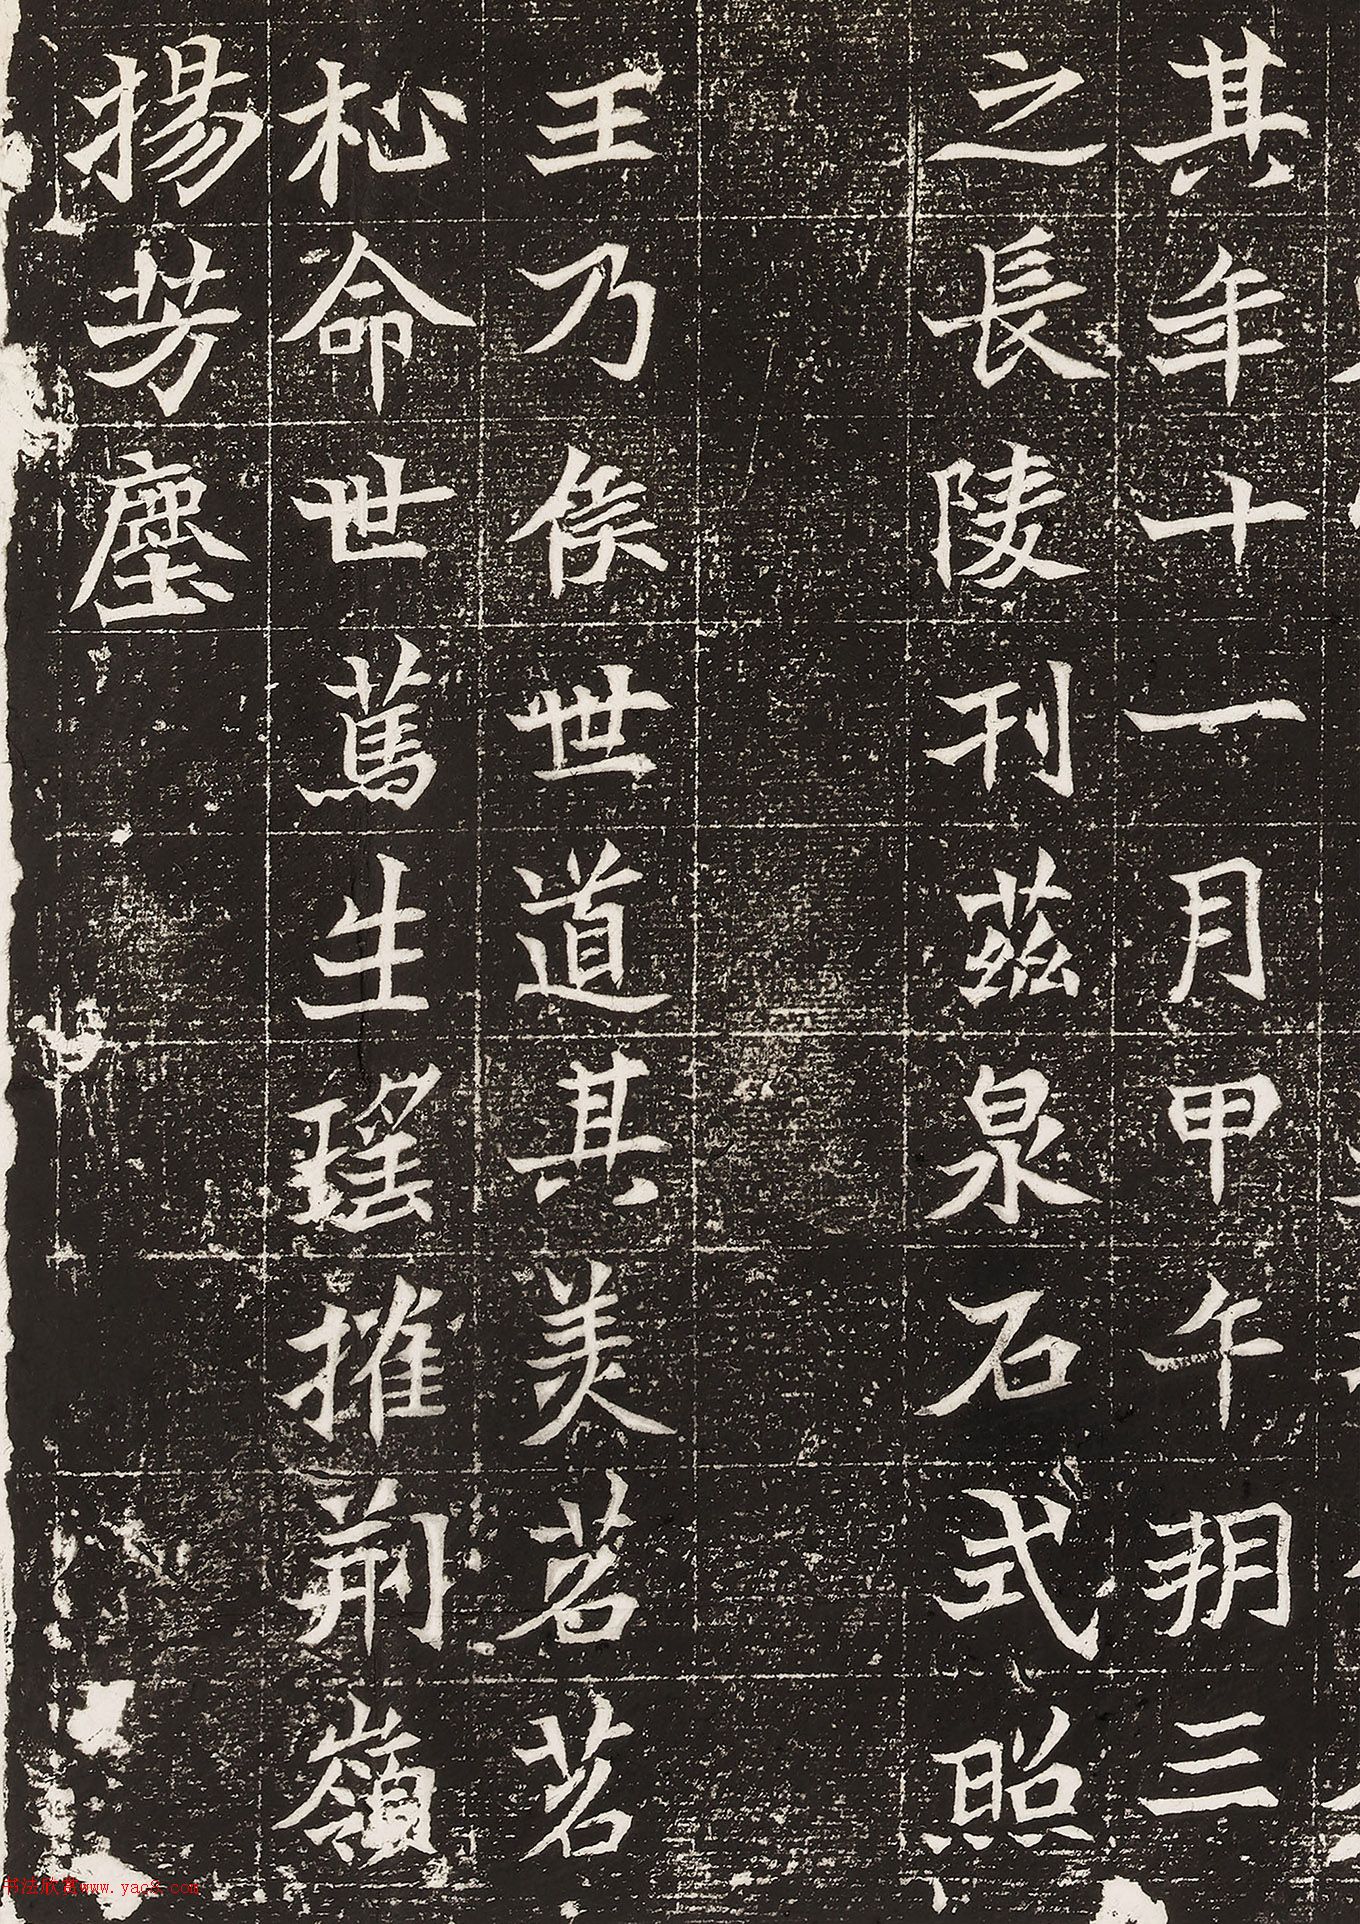 其年十一月甲午朔三
之長陵刊茲泉石式照
王乃侯世道其美茗茗
松命世篤生瑶摧荊嶺
揚芳塵
书法欣赏www.yac8.com